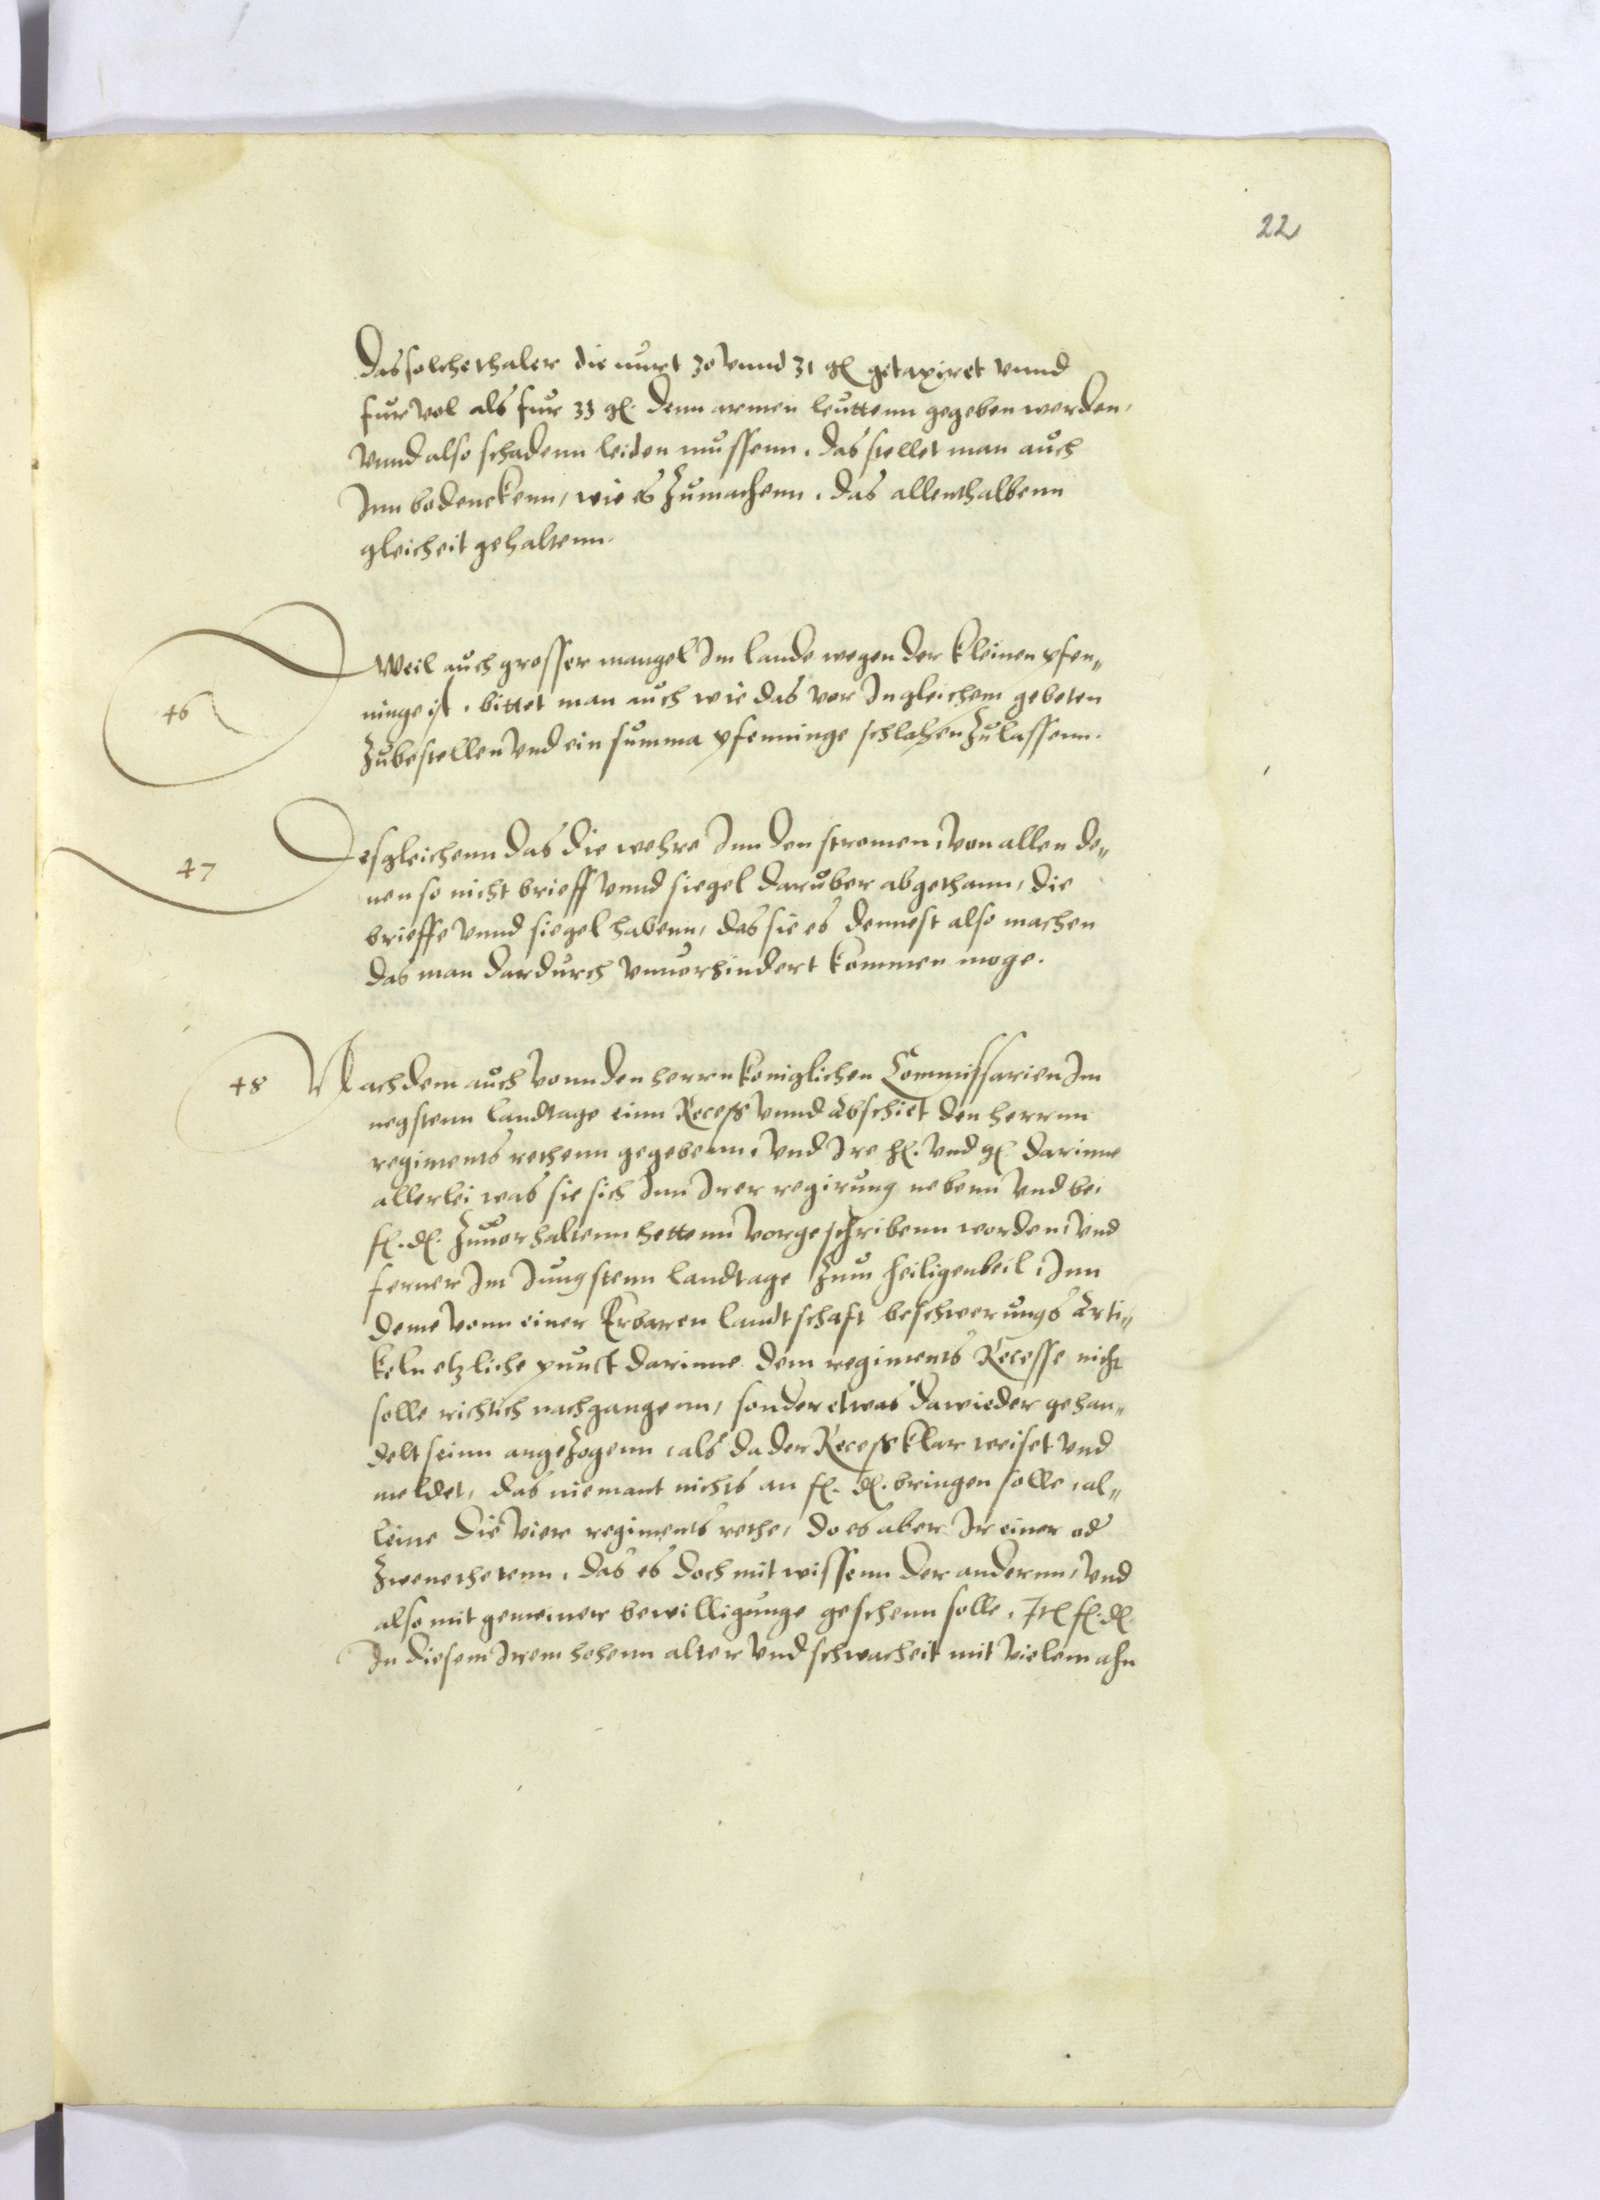 22
Das solche thaler die nurt 30 vnnd 31 gl getaxiret vnnd
fur vol als fur 33 gl. denn armen leuttenn gegeben werden,
vnnd also schadenn leiden mussenn. das stellet man auch
Inn bedenckenn, wie es zumachenn. das allenthalbenn
gleicheit gehaltenn.
46 Weil auch grosser mangel Im lande wegen der kleinen pfen„
ninge ist. bittet man auch wie das vor Ingleichem gebeten
zubestellen vnd ein summa pfenninge schlahen zulassenn.
47 Desgleichenn das die wehre Inn den stromen, von allen de„
nen so nicht brieff vnnd siegel daruber abgethann, die
brieffe vnnd siegel habenn, das sie es dennest also machen
das man dardurch vnuerhindert kommen moge.
48 Nachdem auch vonn den herrn koniglichen Commissarien Im
negstenn landtage einn Recess vnnd Abschiet den herrnn
regiments rethenn gegebenn, vnd Ire hl. vnd gl. darinne
allerlei was sie sich Inn Irer regirung nebenn vnd bei
fl. dl. zuuorhaltenn hettenn vorgeschribenn worden, vnd
ferner Im Jungstenn landtage zum heiligenbeil, Inn
deme vonn einer Erbaren landtschaft beschwerungs Arti„
keln etzliche punct darinne dem regiments Recesse nicht
solle richtich nachgangenn, sonder etwas dawieder gehan„
delt seinn angezogenn, als da der Recess klar weiset vnd
meldet, das niemant nichts an fl. dl. bringen solle, al„
leine die vier regiments rethe, do es aber Ir einer od
zwene thetenn, das es doch mit wissenn der andernn, vnd
also mit gemeiner bewilligunge geschenn solle. Itl fl. dl.
In diesem Irem hohenn alter vnd schwacheit mit vielem ahn